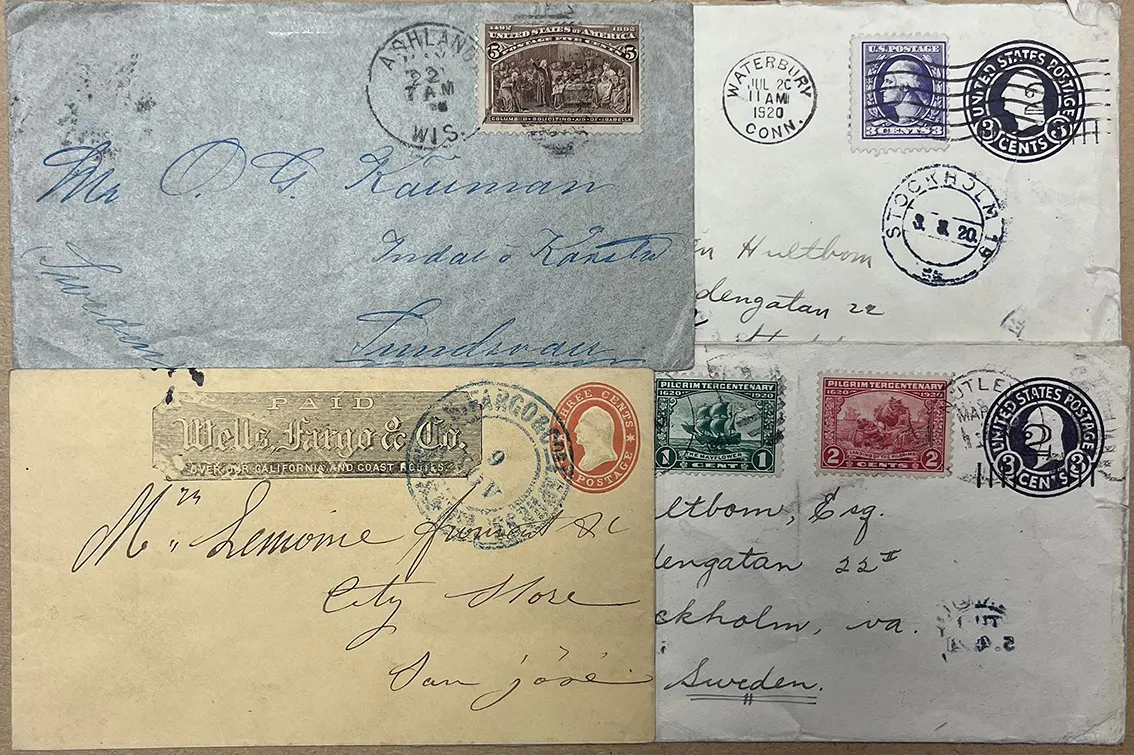 ASHLAND
22
7 AM
WIS.
1492 1892
UNITED STATES OF AMERICA
POSTAGE FIVE CENTS
5 5
COLUMBUS SOLICITING AID OF ISABELLA
Mr O. G. Kauman
Indal
Sweden
WATERBURY
JUL 26
11 AM
1920
CONN.
U.S. POSTAGE
3 CENTS 3
UNITED STATES POSTAGE
3 CENTS 3
STOCKHOLM 19
3. 8. 20.
Hultbom
dengatan 22
PAID
Wells, Fargo & Co.
OVER OUR CALIFORNIA AND COAST ROUTES.
THREE CENTS
POSTAGE
FARGO
6
Mrs Lemoine
City Store
San José
PILGRIM TERCENTENARY
1620 1920
THE MAYFLOWER
1 CENT 1
PILGRIM TERCENTENARY
1620 1920
2 CENTS 2
MAR
UNITED STATES POSTAGE
2
CENTS
ltbom, Esq.
dengatan 22 II
ckholm, va.
Sweden.